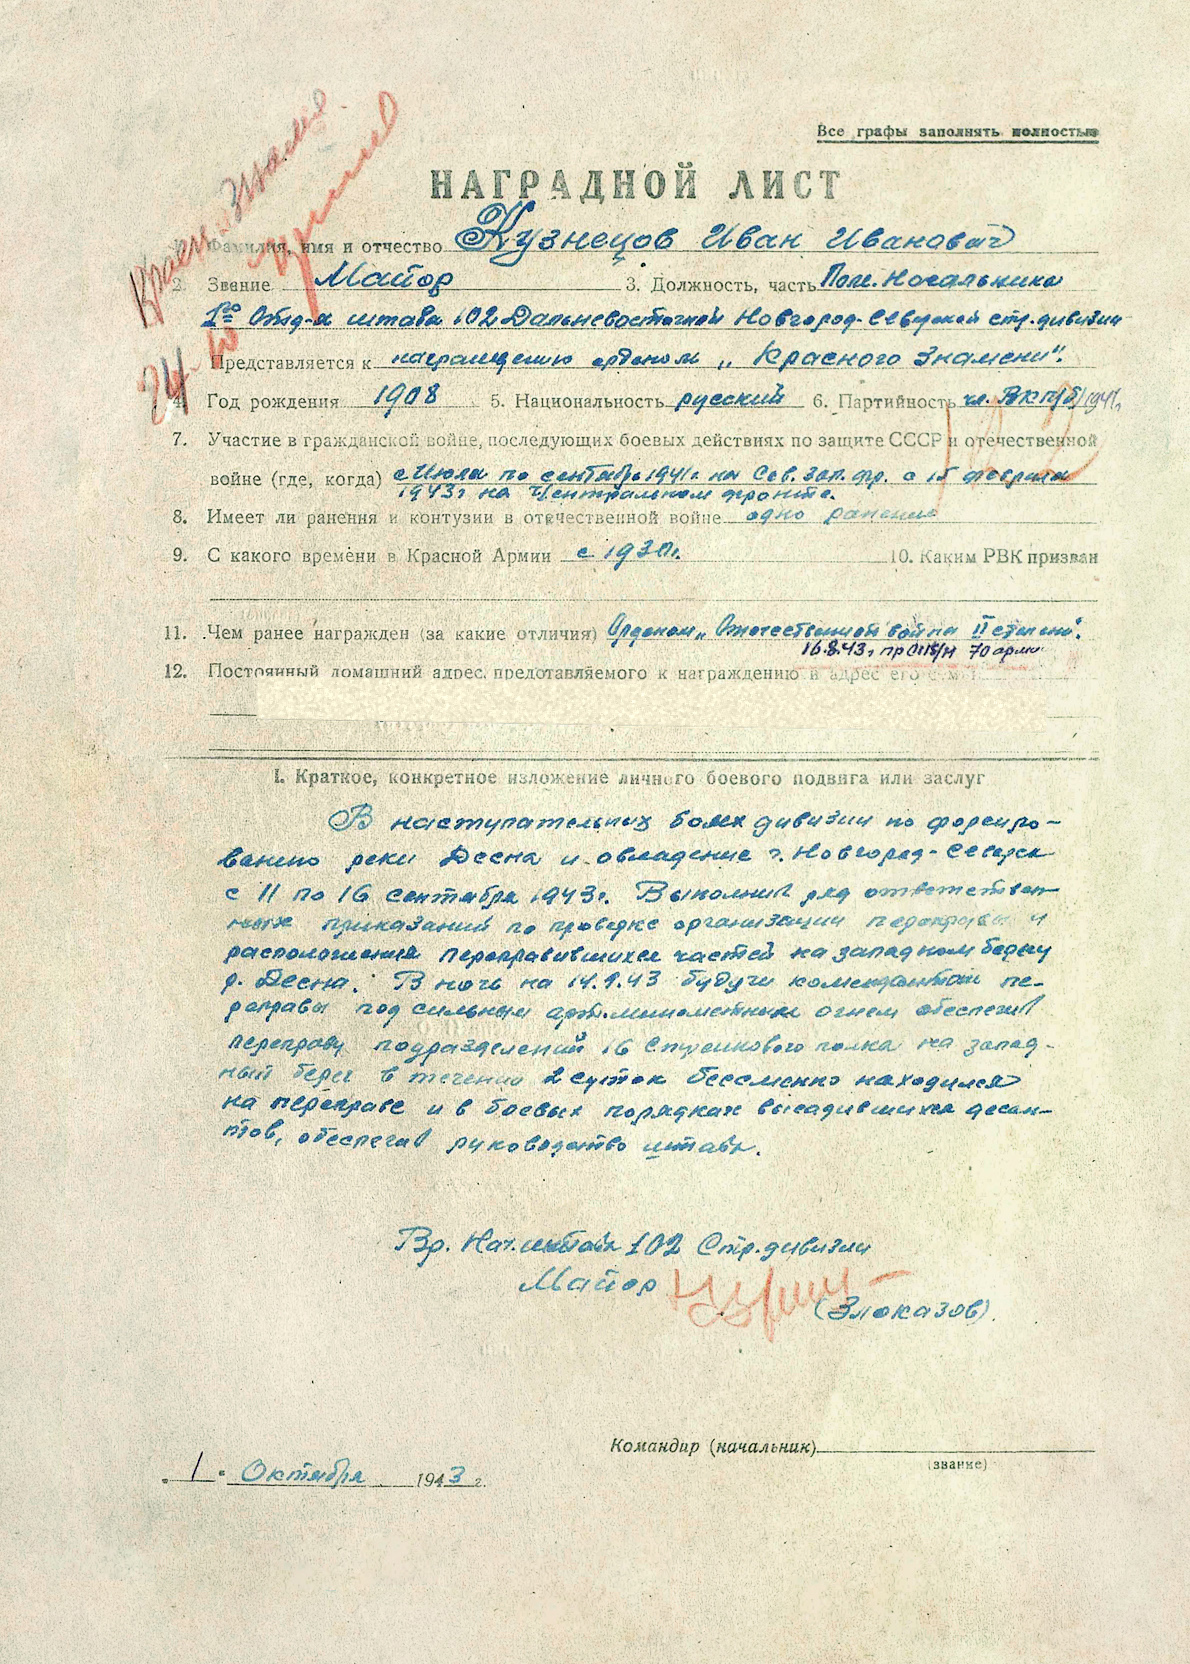 Все графы заполнять полностью
НАГРАДНОЙ ЛИСТ
Красн. Знамя
1. Фамилия, имя и отчество Кузнецов Иван Иванович
2. Звание Майор 3. Должность, часть Пом. Начальника
1го Отд-я штаба 102 Дальневосточной Новгород-Северской стр. дивизии
Представляется к награждению орденом „Красного Знамени".
4. Год рождения 1908 5. Национальность русский 6. Партийность чл. ВКП(б) 1941г.
7. Участие в гражданской войне, последующих боевых действиях по защите СССР и отечественной
войне (где, когда) с Июля по сентябрь 1941г. на Сев. Зап. фр. с 15 февраля
1943г на Центральном фронте.
8. Имеет ли ранения и контузии в отечественной войне одно ранение
9. С какого времени в Красной Армии с 1930г. 10. Каким РВК призван
11. Чем ранее награжден (за какие отличия) Орденом „Отечественной война II степени".
16.8.43г. пр 70 арми
12. Постоянный домашний адрес представляемого к награждению и адрес его семьи
I. Краткое, конкретное изложение личного боевого подвига или заслуг
В наступательных боях дивизии по форсиро-
ванию реки Десна и овладение г. Новгород-Северск
с 11 по 16 сентября 1943г. Выполнил ряд ответствен-
ных приказаний по проверке организации переправы и
расположения переправившихся частей на западном берегу
р. Десна. В ночь на 14.9.43 будучи комендантом пе-
реправы под сильным арт. минометным огнем обеспечил
переправу подразделений 16 Стрелкового полка на запад-
ный берег в течении 2 суток бессменно находился
на переправе и в боевых порядках высадившихся десан-
тов, обеспечил руководство штаба.
Вр. Нач. штаба 102 Стр. дивизии
Майор
(Злоказов).
Командир (начальник)
(звание)
„1" Октября 1943 г.